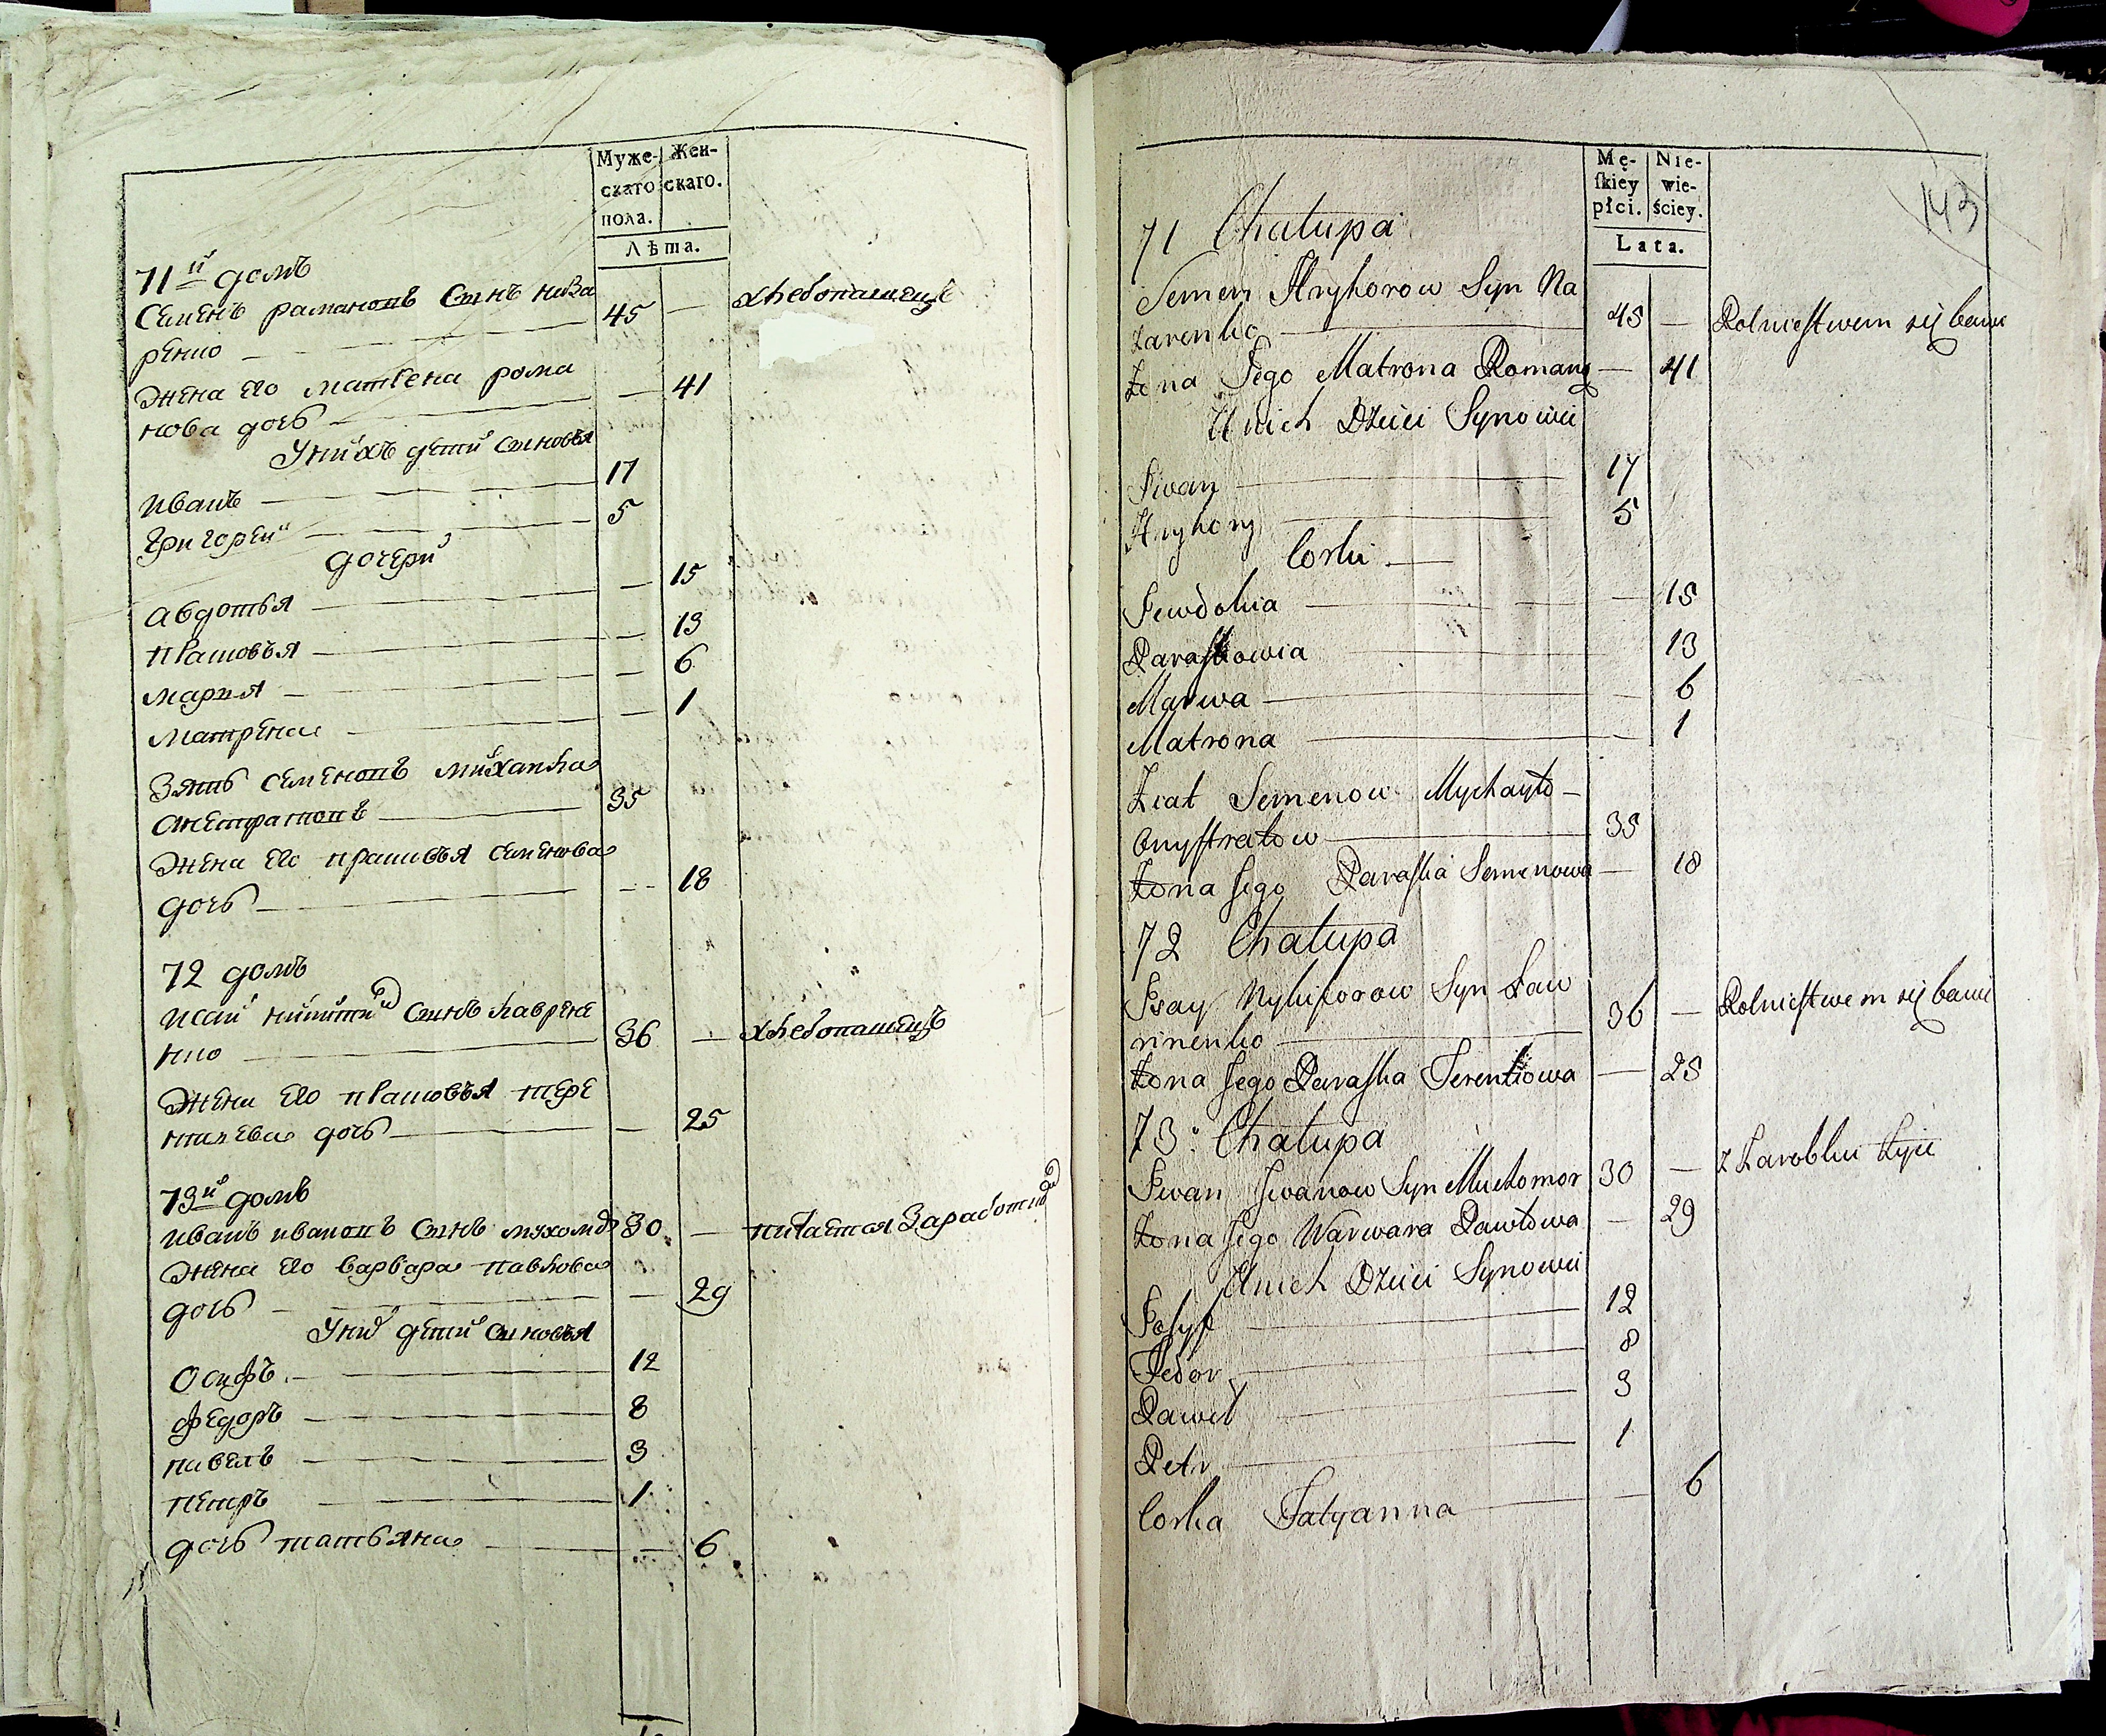 Муже- Жен-
скаго скаго.
пола.
Лѣта.
71й домъ
Семенъ рамановъ Сынъ наза
ренко — 45 — хлебопашецъ
Жена его матрена рома
нова дочь — 41
У нихъ дети Сыновья
иванъ — 17
григорей — 5
дочери
авдотья — 15
прасковъя — 13
мария — 6
матрена — 1
Зять семеновъ михаила
анистратовъ — 35
Жена его прасковья семенова
дочь — 18
72 домъ
исай никити Сынъ лаврене
нко — 36 — хлебопашецъ
Жена его прасковья тере
нтьева дочь — 25
73й домъ
иванъ ивановъ Сынъ мухомор 30 — питается Заработки
Жена его варвара павлова
дочь — 29
У них дети Сыновья
осифъ — 12
федоръ — 8
павелъ — 3
петръ — 1
дочь татьяна — 6
Mę- Nie-
ſkiey wie-
płci. ściey.
Lata.
143
71 Chałupa
Semen Hryhorow Syn Na
zarenko — 45 — Rolnictwem się bawi
Żona Jego Matrona Romana — 41
U nich Dzieci Synowie
Iwan — 17
Hryhory — 5
Corki —
Jewdokia — 15
Paraskowia — 13
Marwa — 6
Matrona — 1
Ziat Semenow Mychayło
Onystratow — 35
Żona Jego Paraska Semenowa — 18
72 Chałupa
Isay Nykiforow Syn Ław
rinenko — 36 — Rolnictwem się bawi
Żona Jego Paraska Terentiowa — 25
73. Chałupa
Iwan Iwanow Syn Muchomor 30 — z Zarobku żyie
Żona Jego Warwara Pawłowa — 29
U nich Dzieci Synowie
Josyf — 12
Fedor — 8
Paweł — 3
Petr — 1
Corka Tatyanna — 6